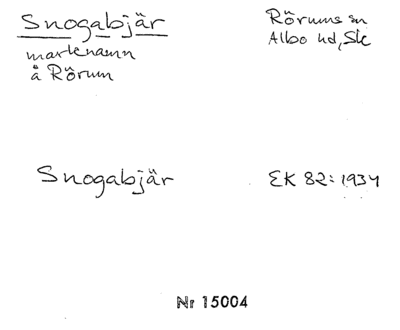 Snogabjär
marknamn
å Rörum
Rörums sn
Albo hd, Sk
Snogabjär
EK 82: 1934
Nr 15004